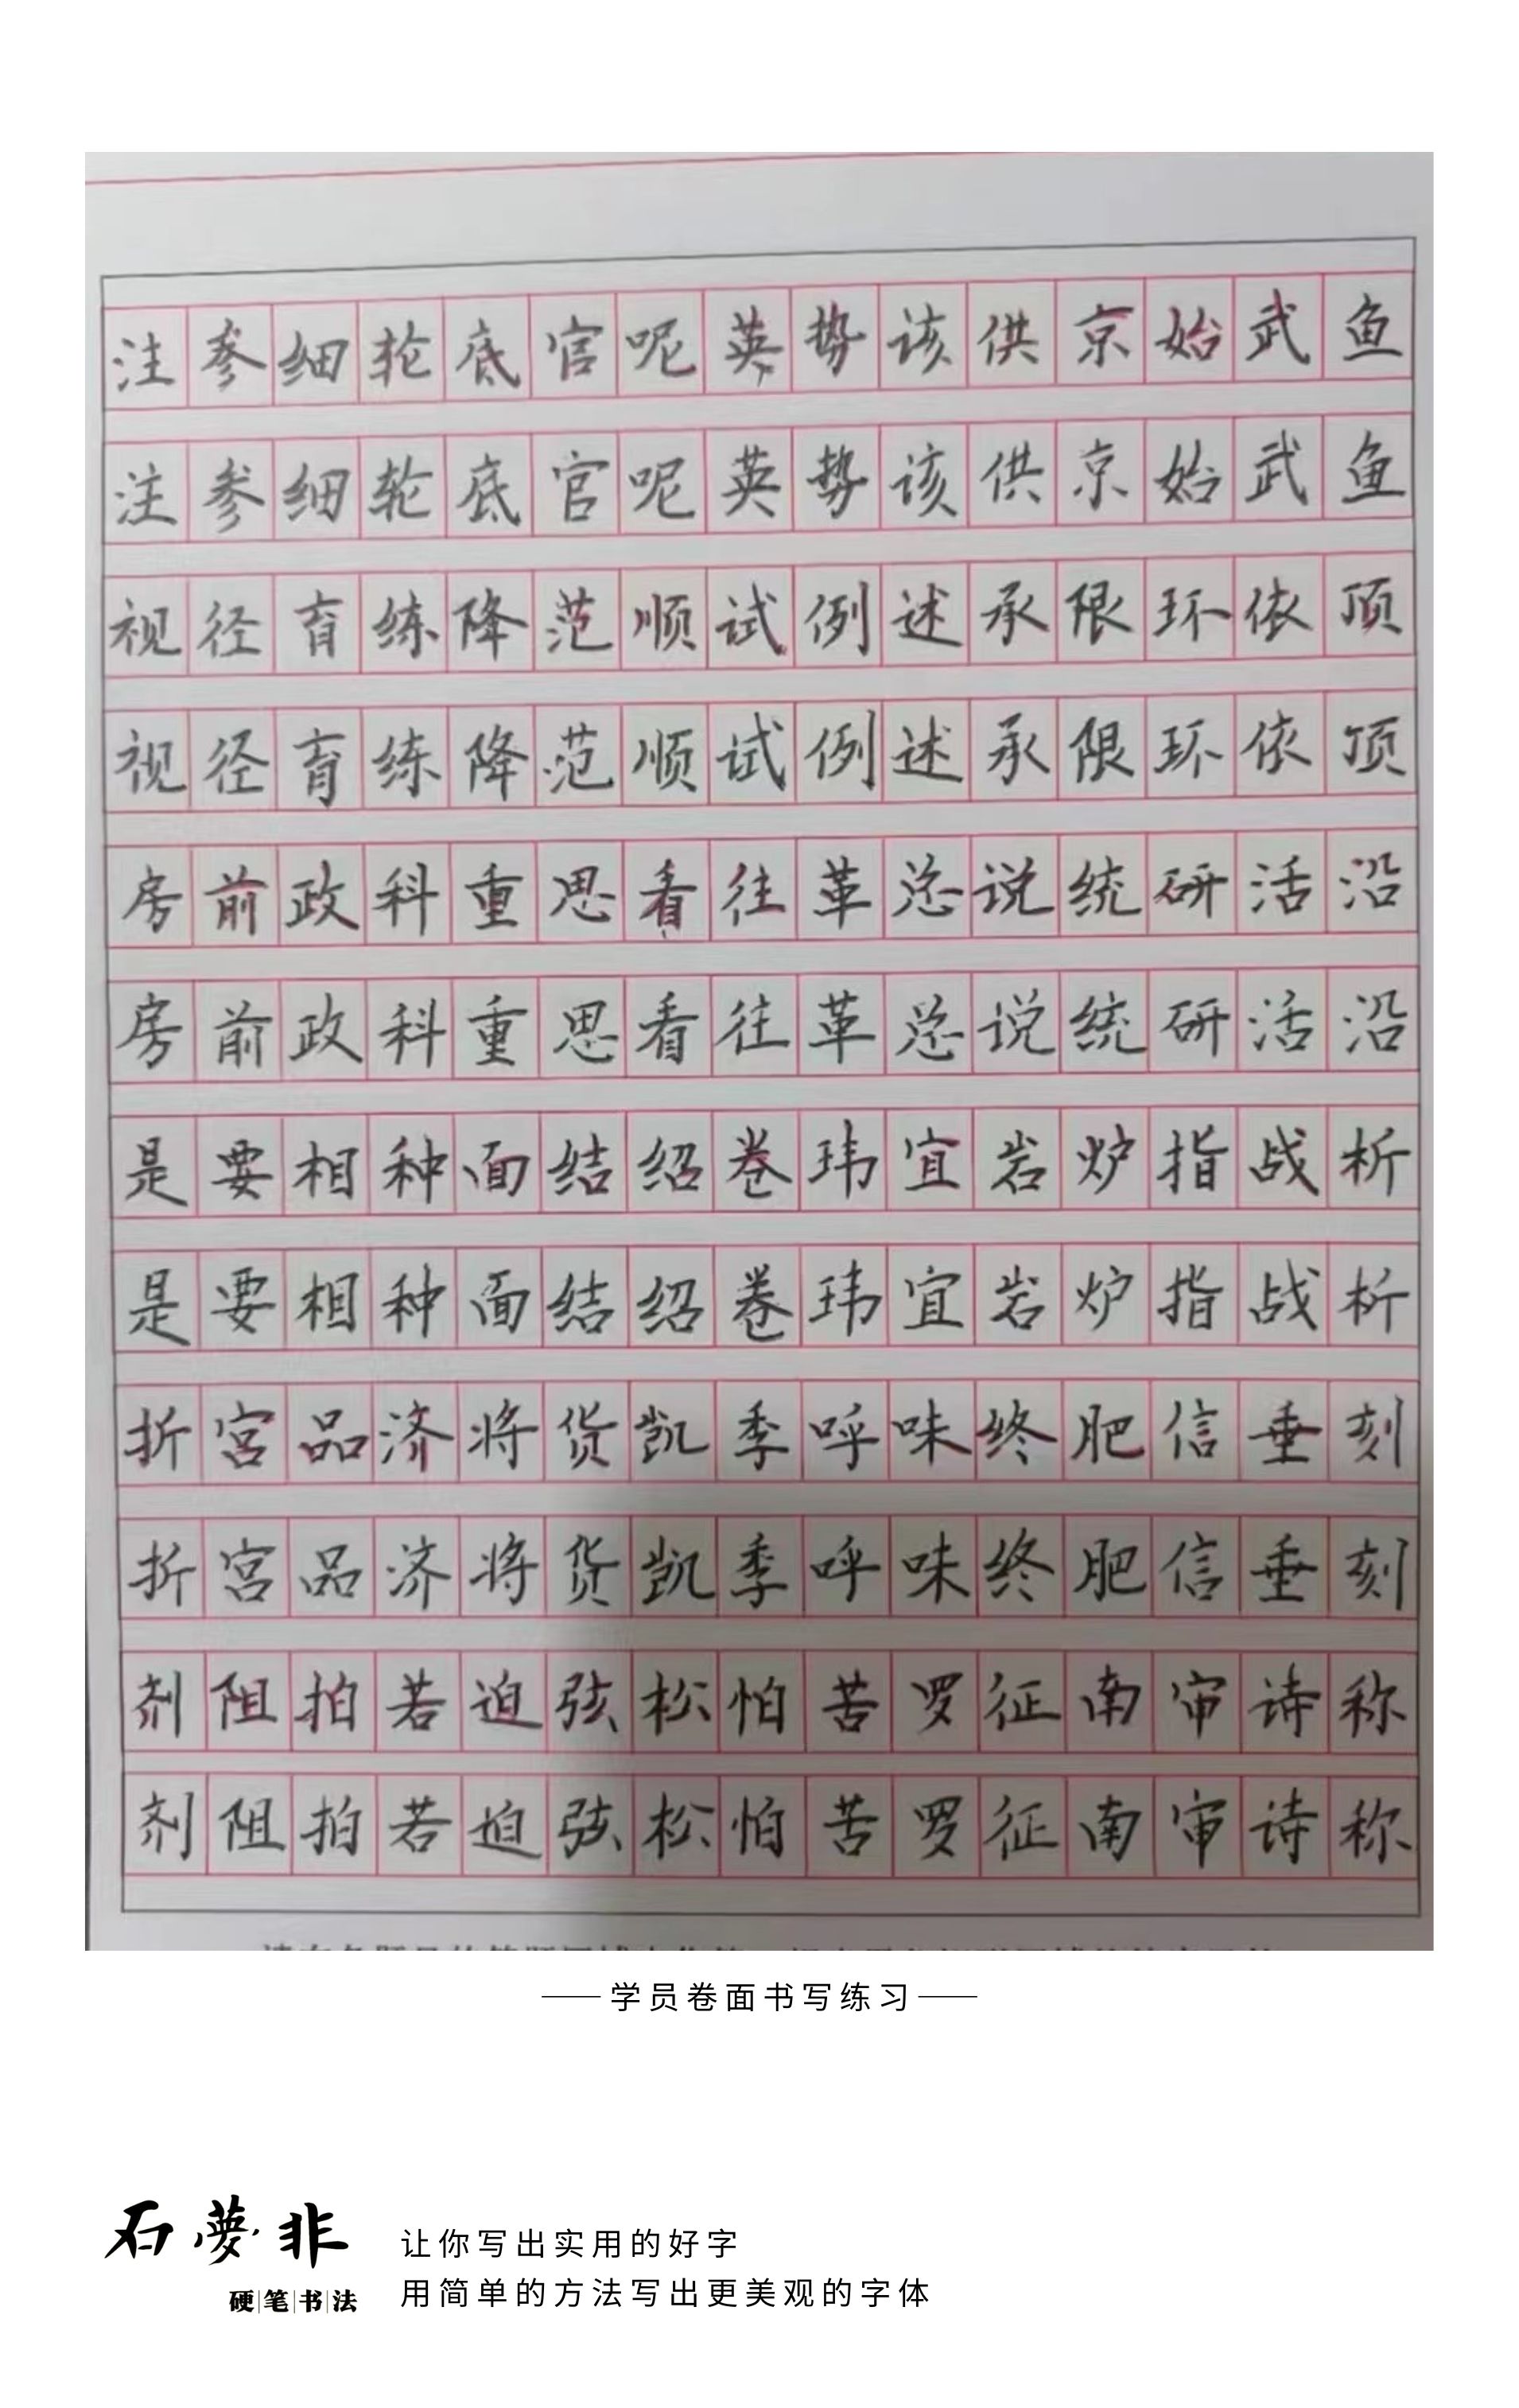 注参细轮底官呢英势该供京始武鱼
注参细轮底官呢英势该供京始武鱼
视径育练降范顺试例述承限环依顶
视径育练降范顺试例述承限环依顶
房前政科重思看往革总说统研活沿
房前政科重思看往革总说统研活沿
是要相种面结绍卷玮宜岩炉指战析
是要相种面结绍卷玮宜岩炉指战析
折宫品济将货凯季呼味终肥信垂刻
折宫品济将货凯季呼味终肥信垂刻
剂阻拍若迫弦松怕苦罗征南审诗称
剂阻拍若迫弦松怕苦罗征南审诗称
学员卷面书写练习
石夢非
硬笔书法
让你写出实用的好字
用简单的方法写出更美观的字体